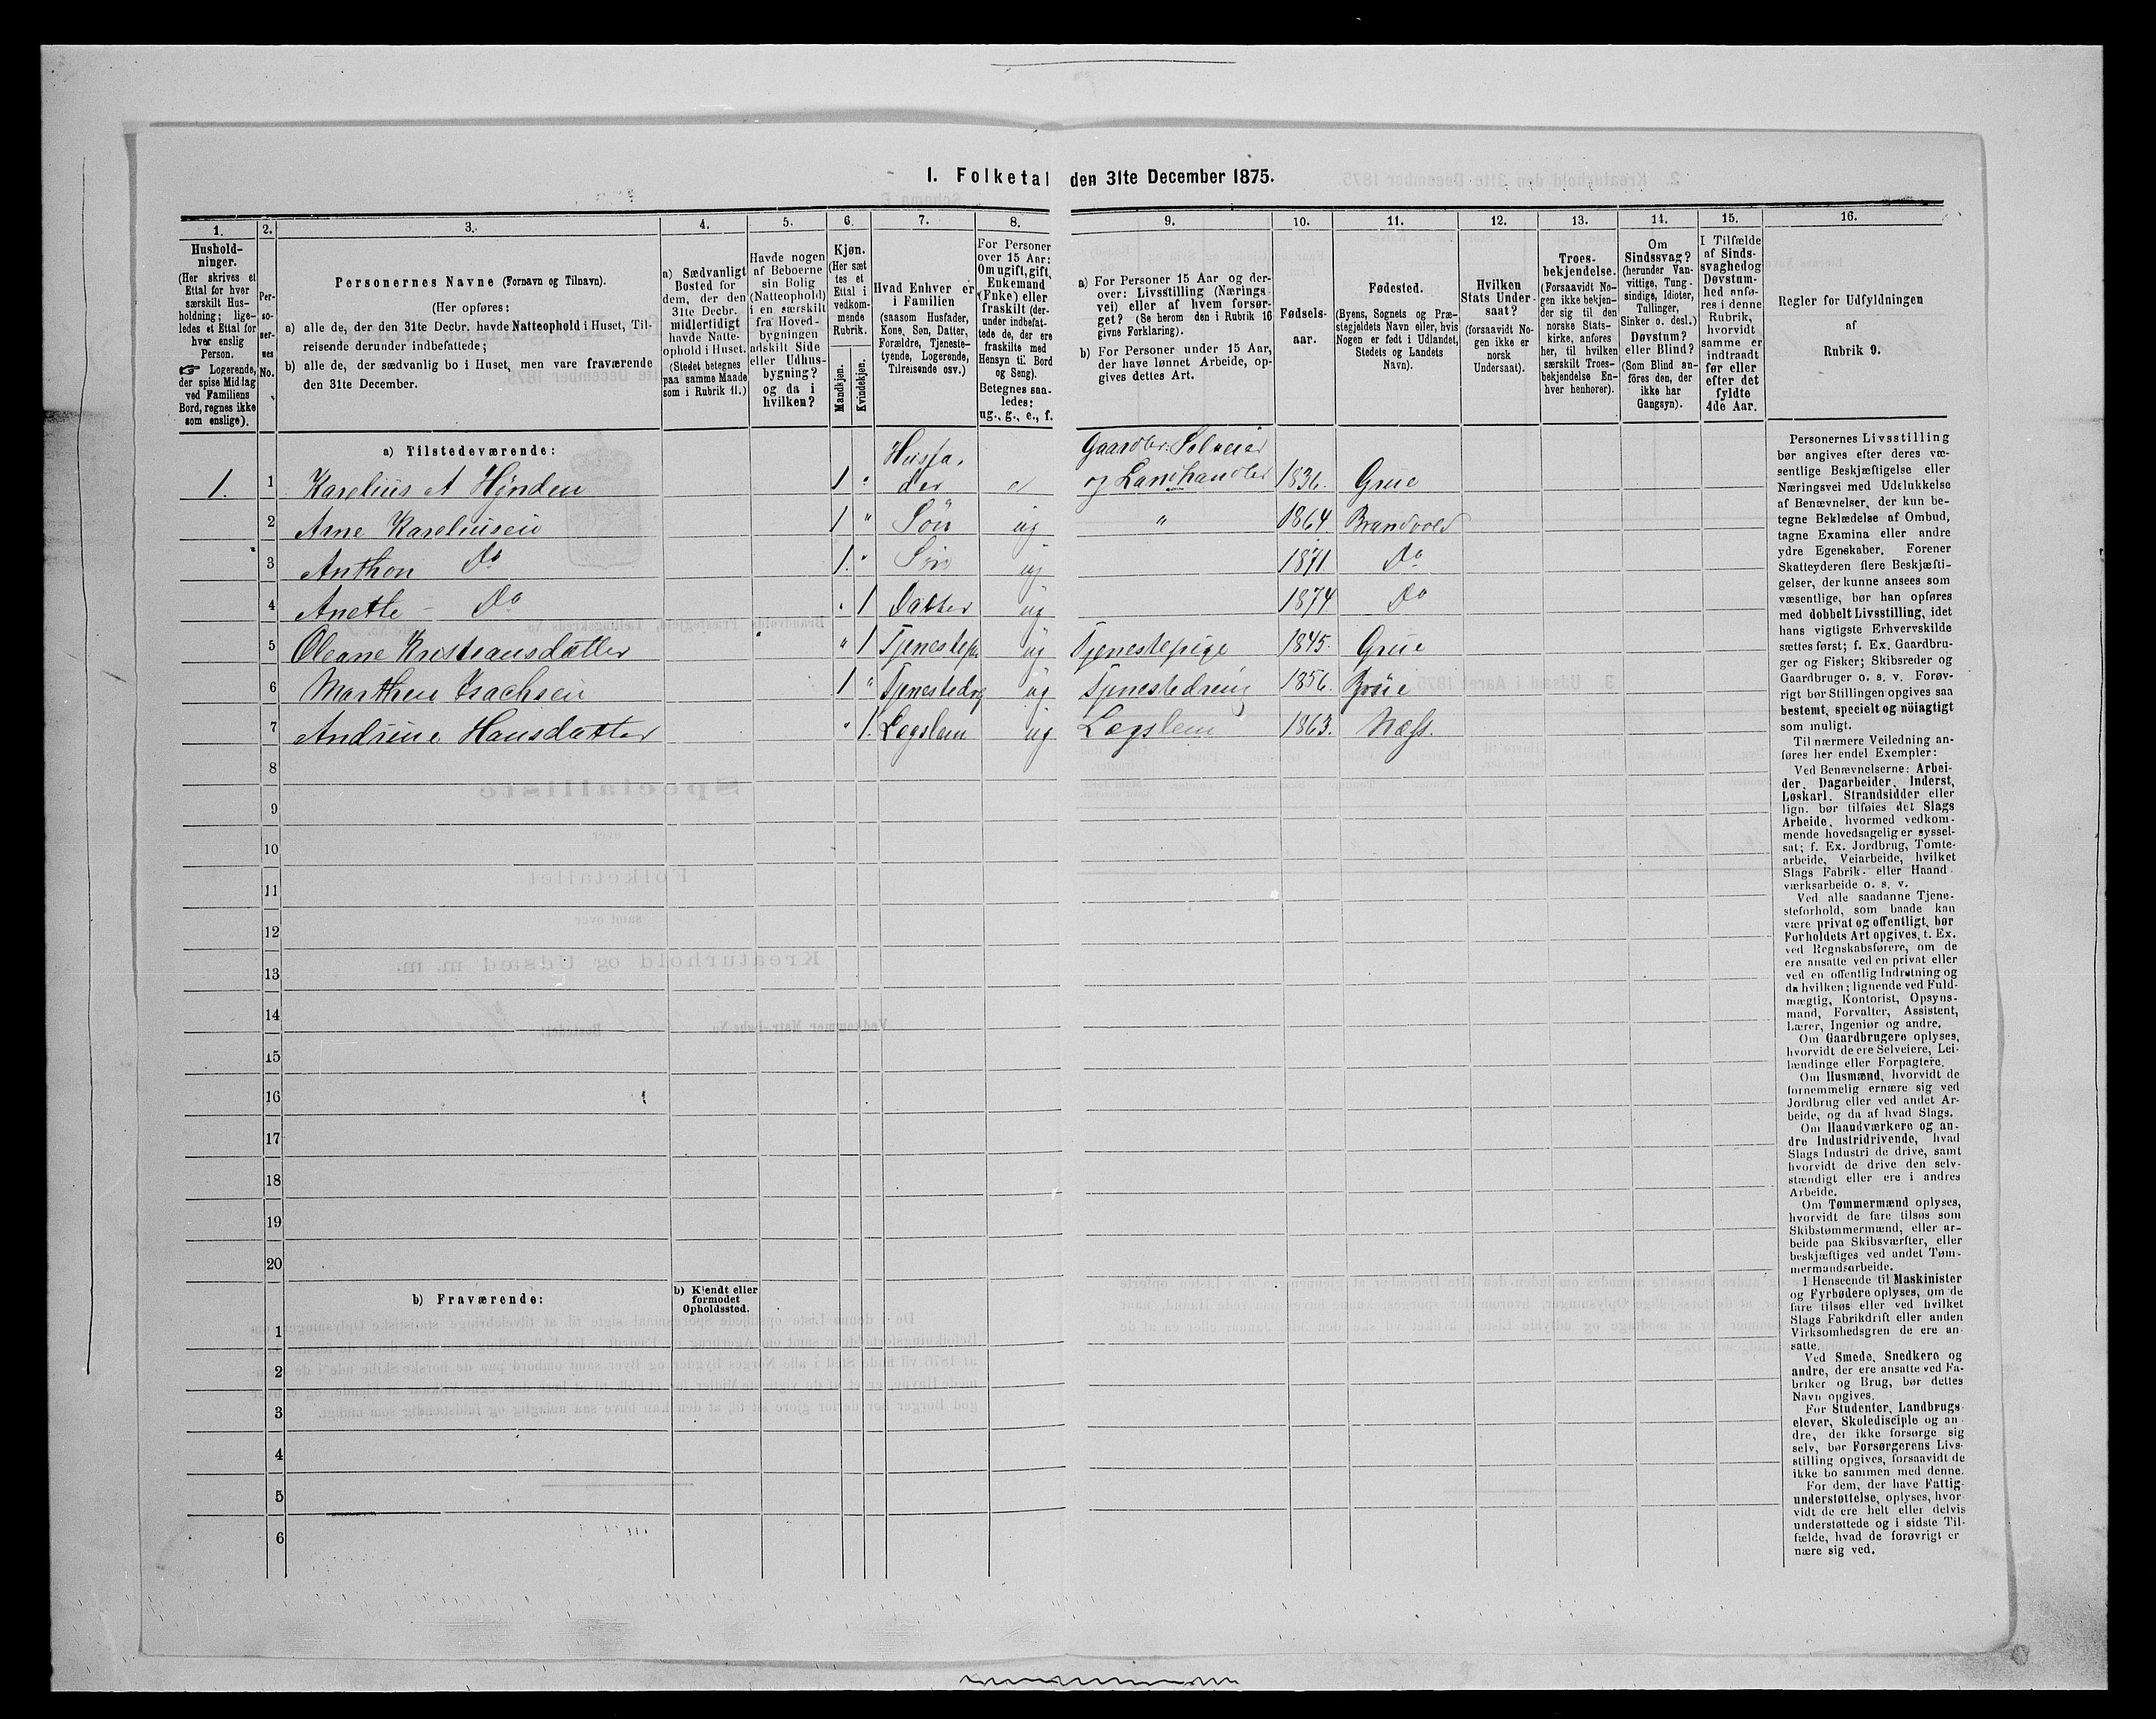 I. Folketal den 31te December 1875.
1.
Hushold-
ninger.
(Her skrives et
Ettal for hver
særskilt Hus-
holdning; lige-
ledes et Ettal for
hver enslig
Person.
☞ Logerende,
der spise Middag
ved Familiens
Bord, regnes ikke
som enslige).
2.
Per-
so-
ner-
nes
No.
3.
Personernes Navne (Fornavn og Tilnavn).
(Her opføres:
a) alle de, der den 31te Decbr. havde Natteophold i Huset, Til-
reisende derunder indbefattede;
b) alle de, der sædvanlig bo i Huset, men vare fraværende
den 31te December.
4.
a) Sædvanligt
Bosted for
dem, der den
31te Decbr.
midlertidigt
havde Natte-
ophold i Huset.
(Stedet betegnes
paa samme Maade
som i Rubrik 11.)
5.
Havde nogen
af Beboerne
sin Bolig
(Natteophold)
i en særskilt
fra Hoved-
bygningen
adskilt Side
eller Udhus-
bygning?
og da i
hvilken?
6.
Kjøn.
(Her sæt
tes et
Ettal i
vedkom-
mende
Rubrik.
Mandkjøn.
Kvindekjøn.
7.
Hvad Enhver er
i Familien
(saasom Husfader,
Kone, Søn, Datter,
Forældre, Tjeneste-
tyende, Logerende,
Tilreisende osv.)
8.
For Personer
over 15 Aar:
Om ugift, gift,
Enkemand
(Enke) eller
fraskilt (der-
under indbefat-
tede de, der ere
fraskilte med
Hensyn til Bord
og Seng).
Betegnes saa-
ledes:
ug., g., e., f.
9.
a) For Personer 15 Aar og der-
over: Livsstilling (Nærings
vei) eller af hvem forsør-
get? (Se herom den i Rubrik 16
givne Forklaring).
b) For Personer under 15 Aar,
der have lønnet Arbeide, op-
gives dettes Art.
10.
Fødsels-
aar.
11.
Fødested.
(Byens, Sognets og Præ-
stegjeldets Navn eller, hvis
Nogen er født i Udlandet,
Stedets og Landets
Navn).
12.
Hvilken
Stats Under-
saat?
(forsaavidt No-
gen ikke er
norsk
Undersaat).
13.
Troes-
bekjendelse.
(Forsaavidt No-
gen ikke bekjen-
der sig til den
norske Stats-
kirke, anføres
her, til hvilken
særskilt Troes-
bekjendelse En-
hver henhører).
14.
Om
Sindssvag?
(herunder Van-
vittige, Tung-
sindige, Idioter,
Tullinger,
Sinker o. desl.)
Døvstum?
eller Blind?
(Som Blind an-
føres den, der
ikke har
Gangsyn).
15.
I Tilfælde
af Sinds-
svaghed og
Døvstum-
hed anfø-
res i denne
Rubrik,
hvorvidt
samme er
indtraadt
før eller
efter det
fyldte
4de Aar.
16.
Regler for Udfyldningen
af
Rubrik 9.
a) Tilstedeværende:
1. 1 Karelius A Hynden 1 " Husfa. der e Gaardbr. Selveier og Landhandler 1836. Grue
2 Arne Kareliusen 1 " Søn ug " 1864 Brandvold
3 Anthon Do 1. " Søn ug 1871 Do
4 Anette - Do " 1 Datter ug 1874 Do
5 Oleane Kristiansdatter " 1 Tjenestep. ug Tjenestepige 1845. Grue
6 Marthen Isachsen 1 " Tjenestedrg ug Tjenestedreng 1856.
7 Andrine Hansdatter " 1. Legslem ug Legslem 1863. Næss.
8
9
10
11
12
13
14
15
16
17
18
19
20
b) Fraværende:
b) Kjendt eller
formodet
Opholdssted.
1
2
3
4
5
6
Personernes Livsstilling
bør angives efter deres væ-
sentlige Beskjæftigelse eller
Næringsvei med Udelukkelse
af Benævnelser, der kun be-
tegne Beklædelse af Ombud,
tagne Examina eller andre
ydre Egenskaber. Forener
Skatteyderen flere Beskjæfti-
gelser, der kunne ansees som
væsentlige, bør han opføres
med dobbelt Livsstilling, idet
hans vigtigste Erhvervskilde
sættes først; f. Ex. Gaardbru-
ger og Fisker; Skibsreder og
Gaardbruger o. s. v. Forøv-
rigt bør Stillingen opgives saa
bestemt, specielt og nöiagtigt
som muligt.
Til nærmere Veiledning an-
føres her endel Exempler:
Ved Benævnelserne: Arbei-
der, Dagarbeider, Inderst,
Løskarl, Strandsidder eller
lign. bør tilføies det Slags
Arbeide, hvormed vedkom-
mende hovedsagelig er syssel-
sat; f. Ex. Jordbrug, Tomte-
arbeide, Veiarbeide, hvilket
Slags Fabrik- eller Haand-
værksarbeide o. s. v.
Ved alle saadanne Tjene-
steforhold, som baade kan
være privat og offentligt, bør
Forholdets Art opgives, t. Ex.
ved Regnskabsførere, om de
ere ansatte ved en privat eller
ved en offentlig Indretning og
da hvilken; lignende ved Fuld-
mægtig, Kontorist, Opsyns-
mand, Forvalter, Assistent,
Lærer, Ingeniør og andre.
Om Gaardbrugere oplyses,
hvorvidt de ere Selveiere, Lei-
lændinge eller Forpagtere.
Om Husmænd, hvorvidt de
fornemmelig ernære sig ved
Jordbrug eller ved andet Ar-
beide, og da af hvad Slags.
Om Haandværkere og an-
dre Industridrivende, hvad
Slags Industri de drive, samt
hvorvidt de drive den selv-
stændigt eller ere i andres
Arbeide.
Om Tømmermænd oplyses,
hvorvidt de fare tilsøs som
Skibstømmermænd, eller ar-
beide paa Skibsværfter, eller
beskjæftiges ved andet Tøm-
mermandsarbeide.
I Henseende til Maskinister
og Fyrbødere oplyses, om de
fare tilsøs eller ved hvilket
Slags Fabrikdrift eller anden
Virksomhedsgren de ere an-
satte.
Ved Smede, Snedkere og
andre, der ere ansatte ved Fa-
briker og Brug, bør dettes
Navn opgives.
For Studenter, Landbrugs-
elever, Skoledisciple og an-
dre, der ikke forsørge sig
selv, bør Forsørgerens Livs-
stilling opgives, forsaavidt de
ikke bo sammen med denne.
For dem, der have Fattig-
understøttelse, oplyses, hvor-
vidt de ere helt eller delvis
understøttede og i sidste Til-
fælde, hvad de forøvrigt er
nære sig ved.